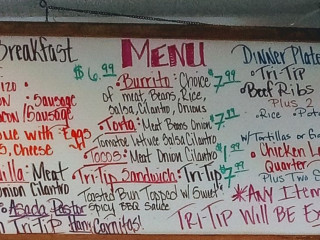 Breakfast
120
ON • Sausage
acon/Sausage
que with • Eggs
s, Cheese
dilla: Meat
Onion Cilantro
Asada Pastor
Tri Tip Ham Carnitas!
MENU
$6.99
• Burrito: Choice $7.99
of meat, Beans, Rice,
Salsa, Cilantro, Onions
• Torta: Meat Beans Onion $7.99
Tomatoe Lettuce Salsa Cilantro
• Tacos: Meat Onion Cilantro $1.99
• Tri-Tip Sandwich: Tri-Tip $7.99
Toasted Bun Topped w/ Sweet
Spicy BBQ Sauce
Dinner Plate
• Tri-Tip
• Beef Ribs
Plus 2
• Rice • Pota
w/Tortillas or Ga
• Chicken L
Quarter
Plus Two S
*Any Item
TRI-TIP WILL BE Ex